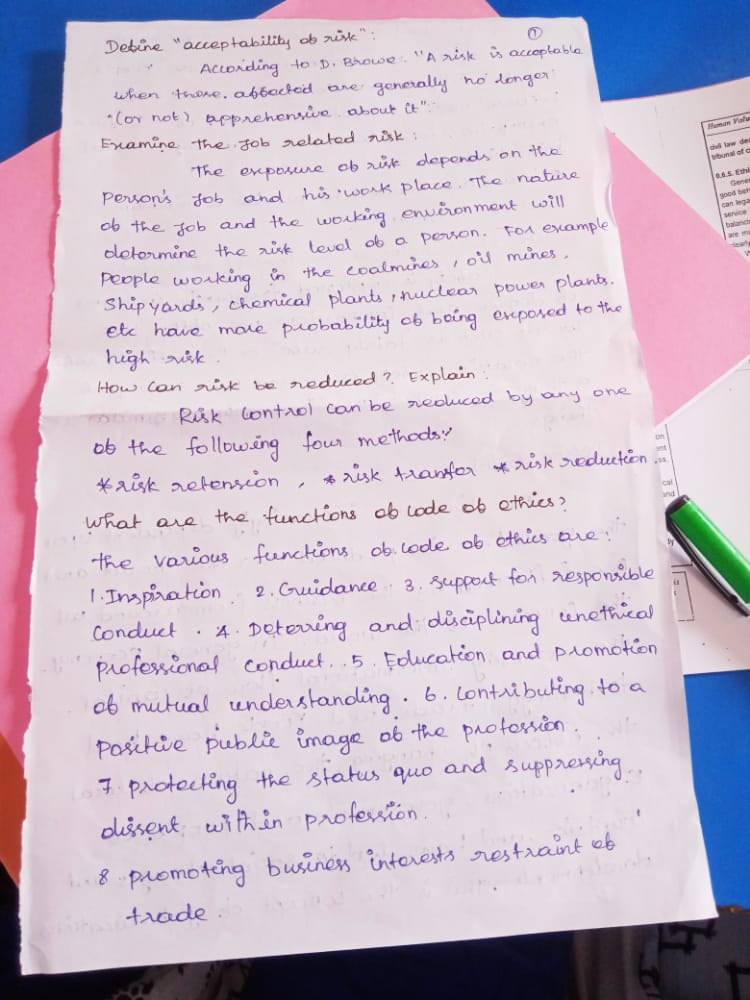 ①
Define "acceptability of risk":
According to D. Browe. "A risk is acceptable
when those. affected are generally no longer
"(or not) apprehensive about it".
Examine the job related risk:
The exposure of risk depends on the
Person's job and his work place. The nature
of the job and the working environment will
determine the risk level of a person. For example
People working in the coalmines, oil mines,
Ship yards, chemical plants, nuclear power plants.
etc have more probability of being exposed to the
high risk.
How can risk be reduced? Explain:
Risk Control can be reduced by any one
of the following four methods:
*risk retension, *risk transfer *risk reduction.
What are the functions of code of ethics?
The various functions of code of ethics are:
1. Inspiration 2. Guidance 3. Support for responsible
Conduct. 4. Deterring and disciplining unethical
professional conduct. 5. Education and promotion
of mutual understanding. 6. Contributing to a
Positive public image of the profession.
7 protecting the status quo and suppressing
dissent within profession.
8 promoting business interests restraint of
trade.
Human Valu
civil law
tribunal of c
9.6.5. Ethi
Gener
good beh
can lega
service
balancin
are m
clearly